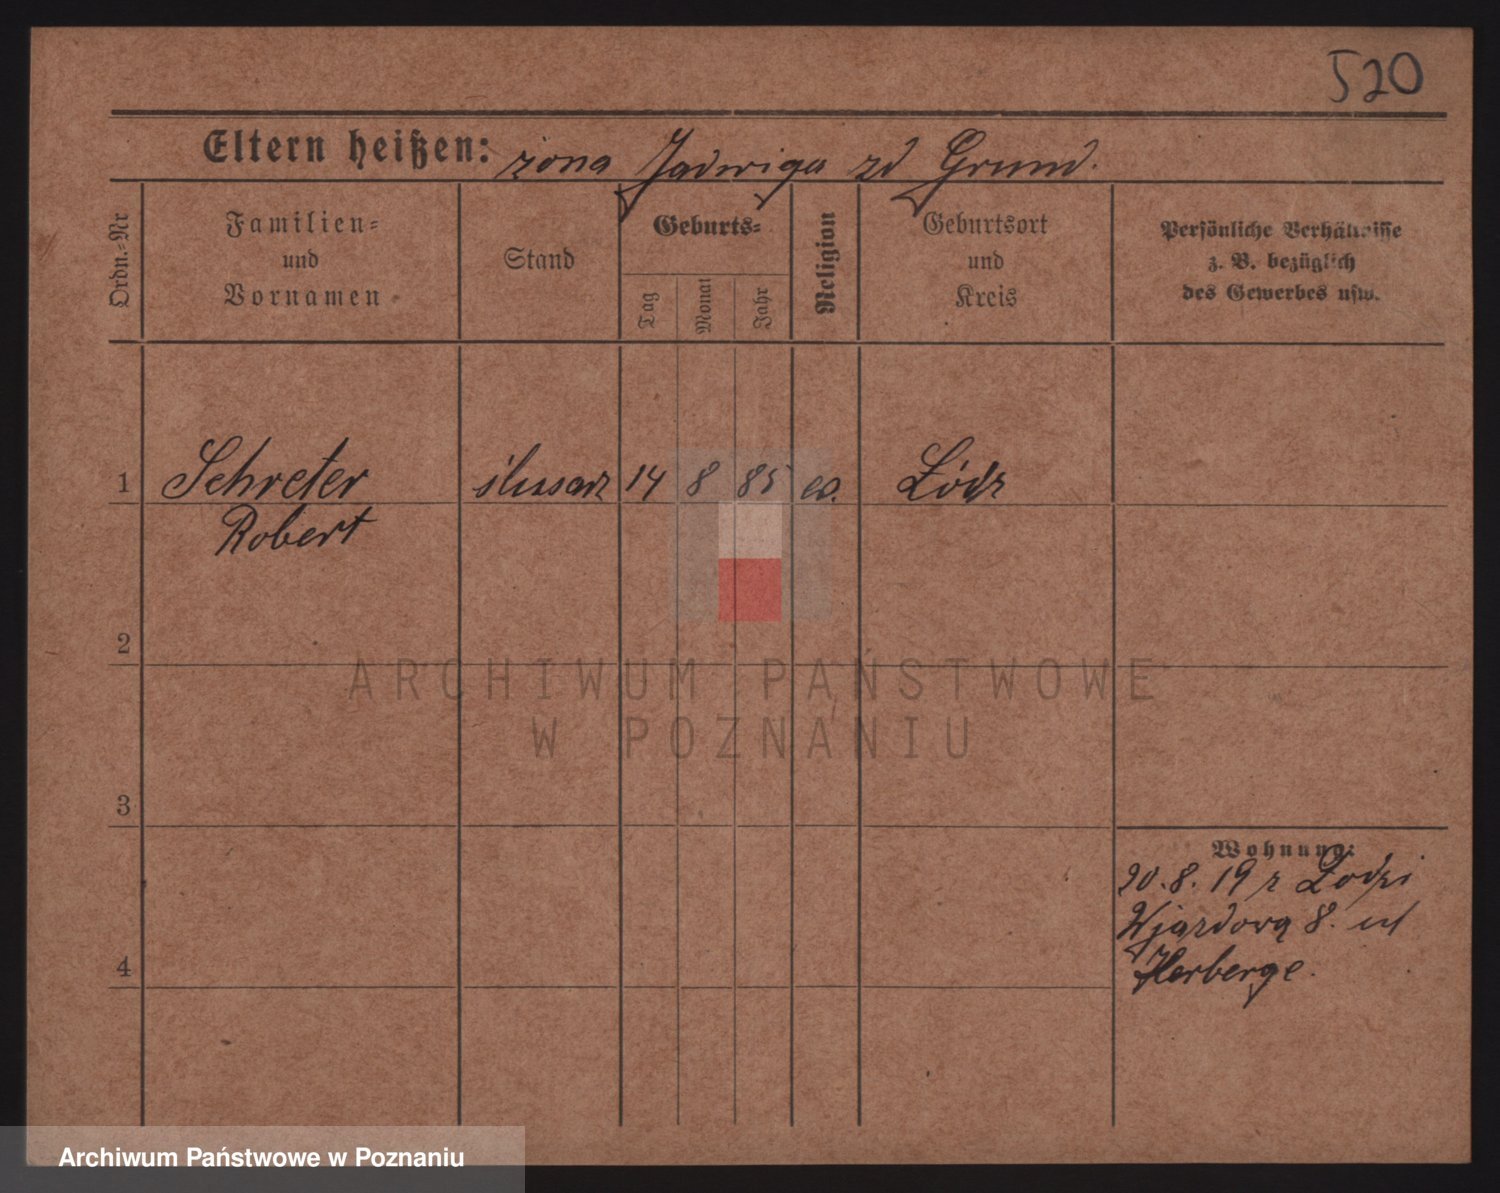 520
Eltern heißen: żona Jadwiga zd Grund.
Ordn.-Nr
Familien-
und
Vornamen
Stand
Geburts-
Tag
Monat
Jahr
Religion
Geburtsort
und
Kreis
Persönliche Verhältnisse
z. B. bezüglich
des Gewerbes usw.
1 Schreter ślusarz 14 8 85 ew. Łódź
Robert
2
3
4
Wohnung:
20.8.19 z Łodzi
Wjazdową 8.
Herberge.
ARCHIWUM PAŃSTWOWE
W POZNANIU
Archiwum Państwowe w Poznaniu